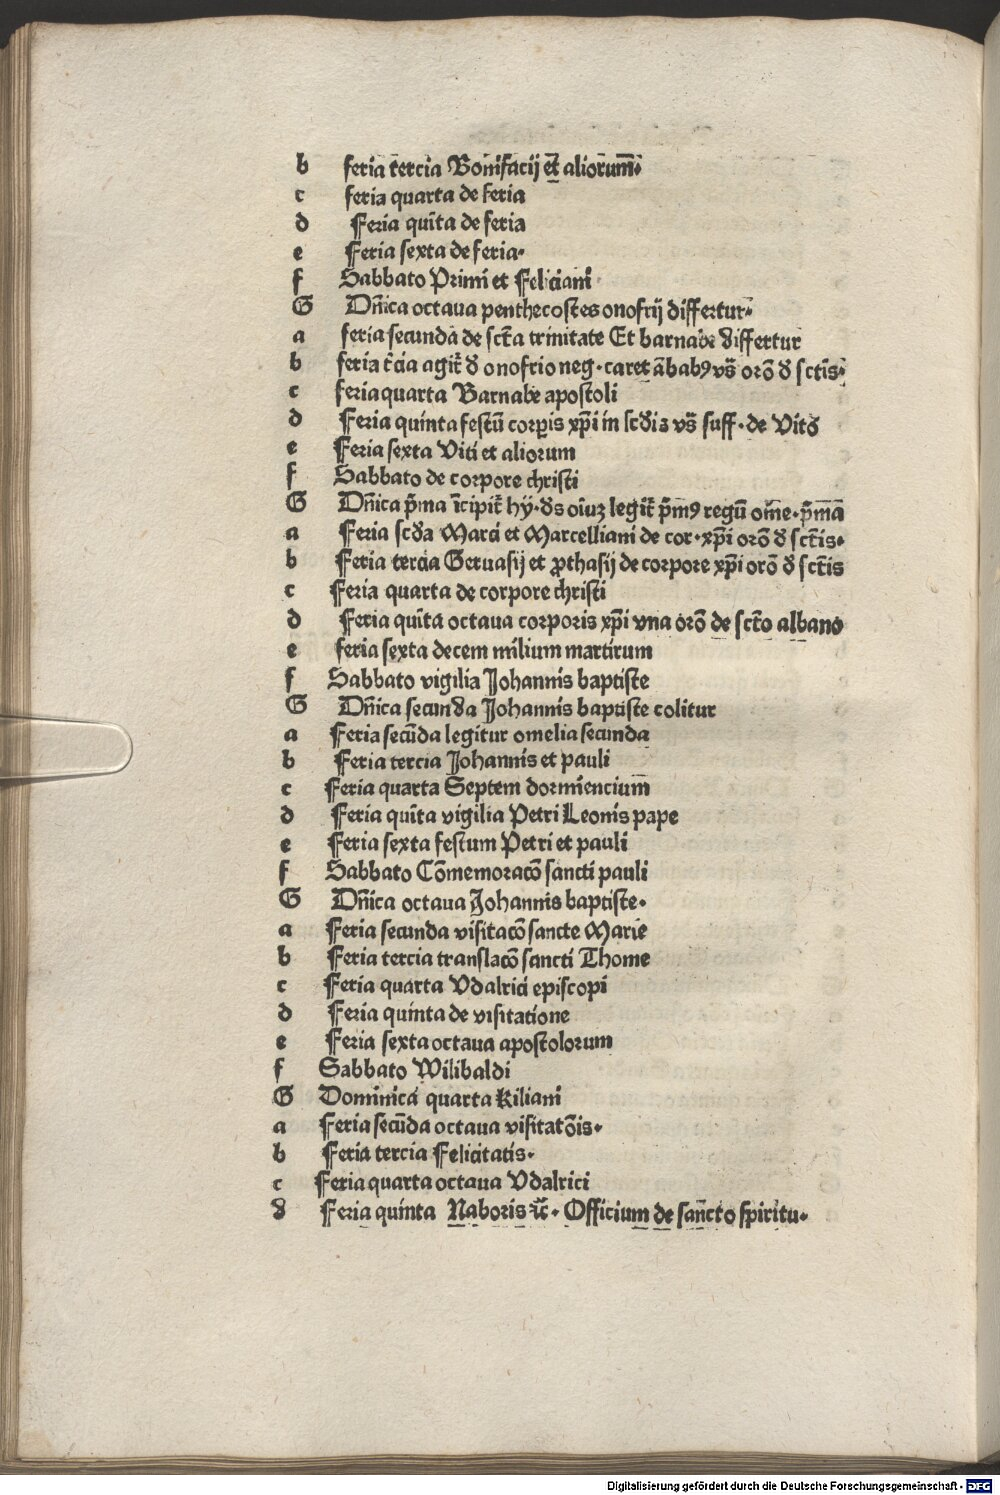 b feria tercia Bonifacij et aliorum.
c feria quarta de feria
d Feria quīta de feria
e Feria sexta de feria.
f Sabbato Primi et Feliciani
G Dn̄ica octaua penthecostes onofrij differtur.
a feria secunda de sct̄a trinitate Et barnabe differtur
b feria t̄cia agit̄ d onofrio neg. caret ābabꝰ vs̄ orō d sctis.
c feria quarta Barnabe apostoli
d Feria quinta festū corpis xp̄i in scdis vs̄ suff. de Vito
e Feria sexta Viti et aliorum
f Sabbato de corpore christi
G Dn̄ica p̄ma īcipit̄ hy. ds oīuꝫ legit̄ p̄mꝰ regū ome. p̄mā
a Feria scda Marci et Marcelliani de cor. xp̄i orō d sct̄is.
b Feria tercia Geruasij et ꝓthasij de corpore xp̄i orō d sct̄is
c Feria quarta de corpore christi
d Feria quīta octaua corporis xp̄i vna orō de sct̄o albano
e feria sexta decem milium martirum
f Sabbato vigilia Johannis baptiste
G Dn̄ica secunda Johannis baptiste colitur
a Feria secūda legitur omelia secunda
b Feria tercia Johannis et pauli
c Feria quarta Septem dormiencium
d Feria quīta vigilia Petri Leonis pape
e Feria sexta festum Petri et pauli
f Sabbato Cōmemoracō sancti pauli
G Dn̄ica octaua Johannis baptiste.
a Feria secunda visitacō sancte Marie
b Feria tercia translacō sancti Thome
c Feria quarta Vdalrici episcopi
d Feria quinta de visitatione
e Feria sexta octaua apostolorum
f Sabbato Wilibaldi
G Dominica quarta Kiliani
a Feria secūda octaua visitatōis.
b Feria tercia Felicitatis.
c Feria quarta octaua Vdalrici
d Feria quinta Naboris ⁊c̄. Officium de sancto spiritu.
Digitalisierung gefördert durch die Deutsche Forschungsgemeinschaft - DFG